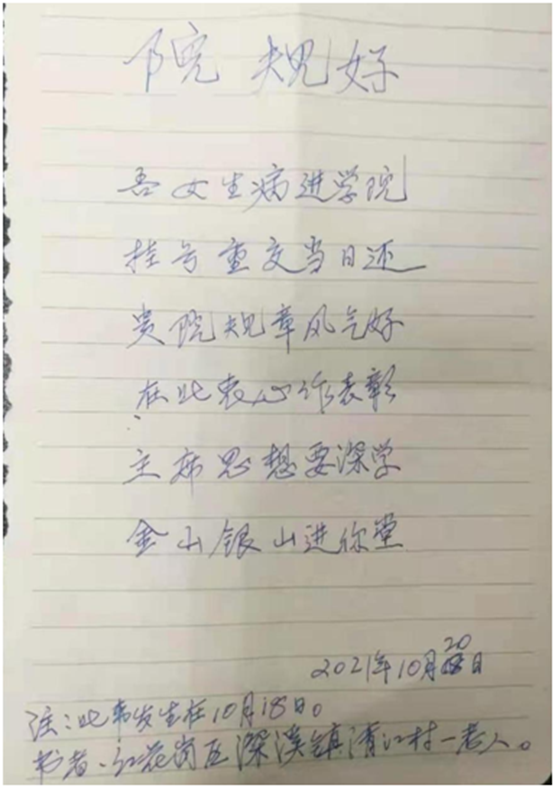 院规好
吾女生病进学院
挂号重交当日还
贵院规章风气好
在此衷心作表彰
主席思想要深学
金山银山进你堂
2021年10月20日
注：此事发生在10月18日。
书者·红花岗区深溪镇清江村一老人。